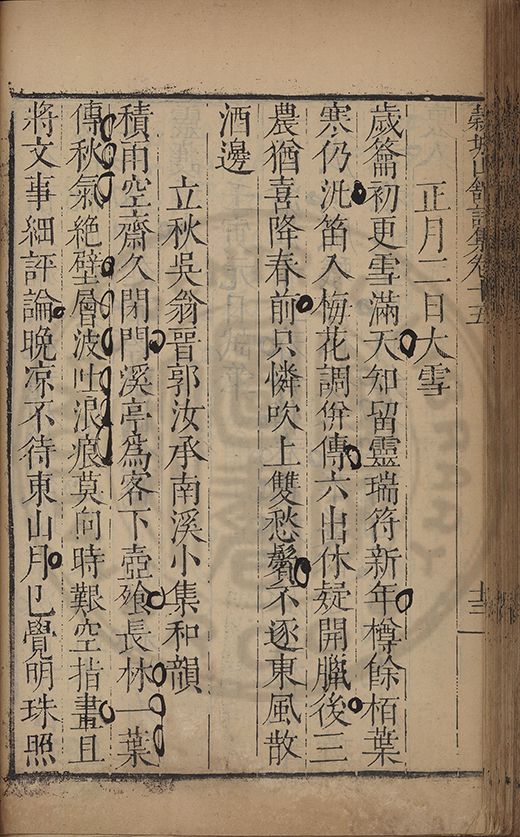 穀城山館詩集卷十五
正月二日大雪
歲籥初更雪滿天知留靈瑞符新年樽餘栢葉
寒仍沍笛入梅花調併傳六出休疑開臘後三
農猶喜降春前只憐吹上雙愁鬢不逐東風散
酒邊
立秋吳翁晉郭汝承南溪小集和韻
積雨空齋久閉門溪亭爲客下壺飱長林一葉
傳秋氣絶壁層波吐浪痕莫向時艱空指畫且
將文事細評論晚凉不待東山月已覺明珠照